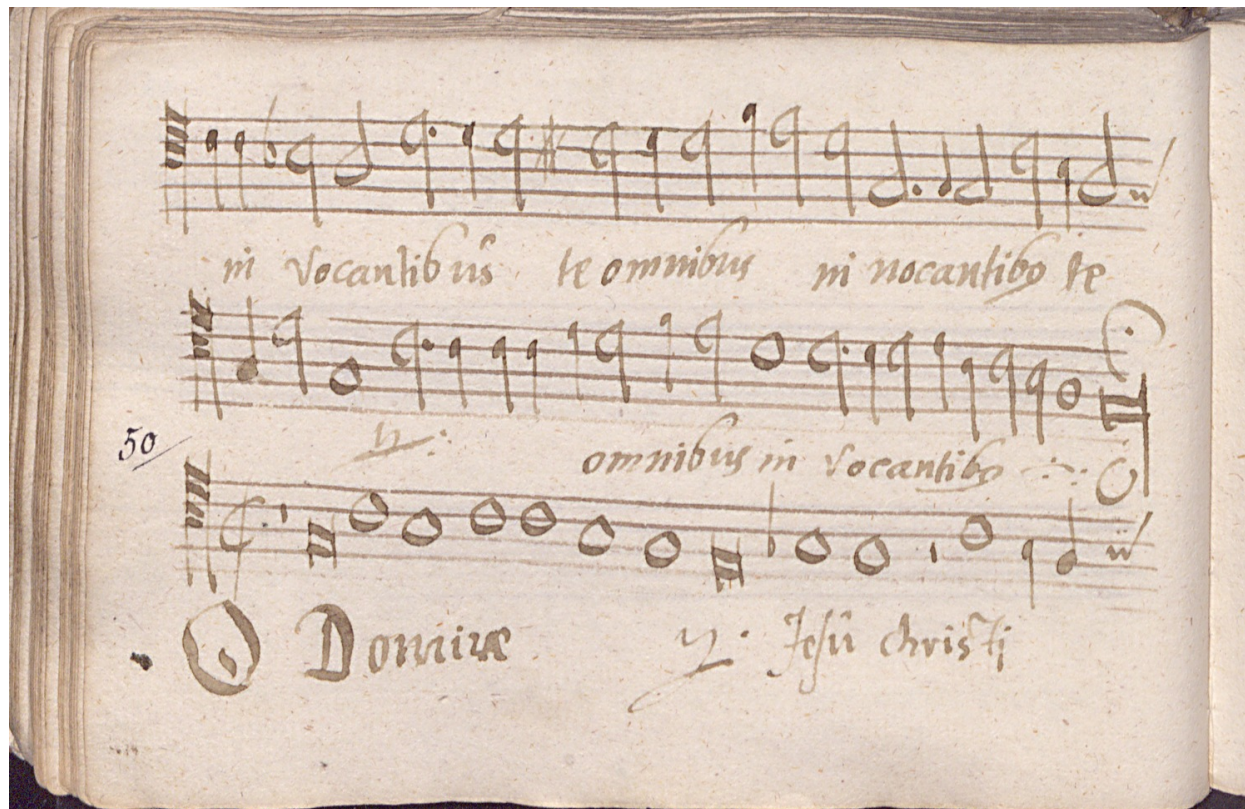 in vocantibus te omnibus in uocantibꝰ te
ij:
omnibus in vocantibꝰ
50
O Domine ij. Jesu christi